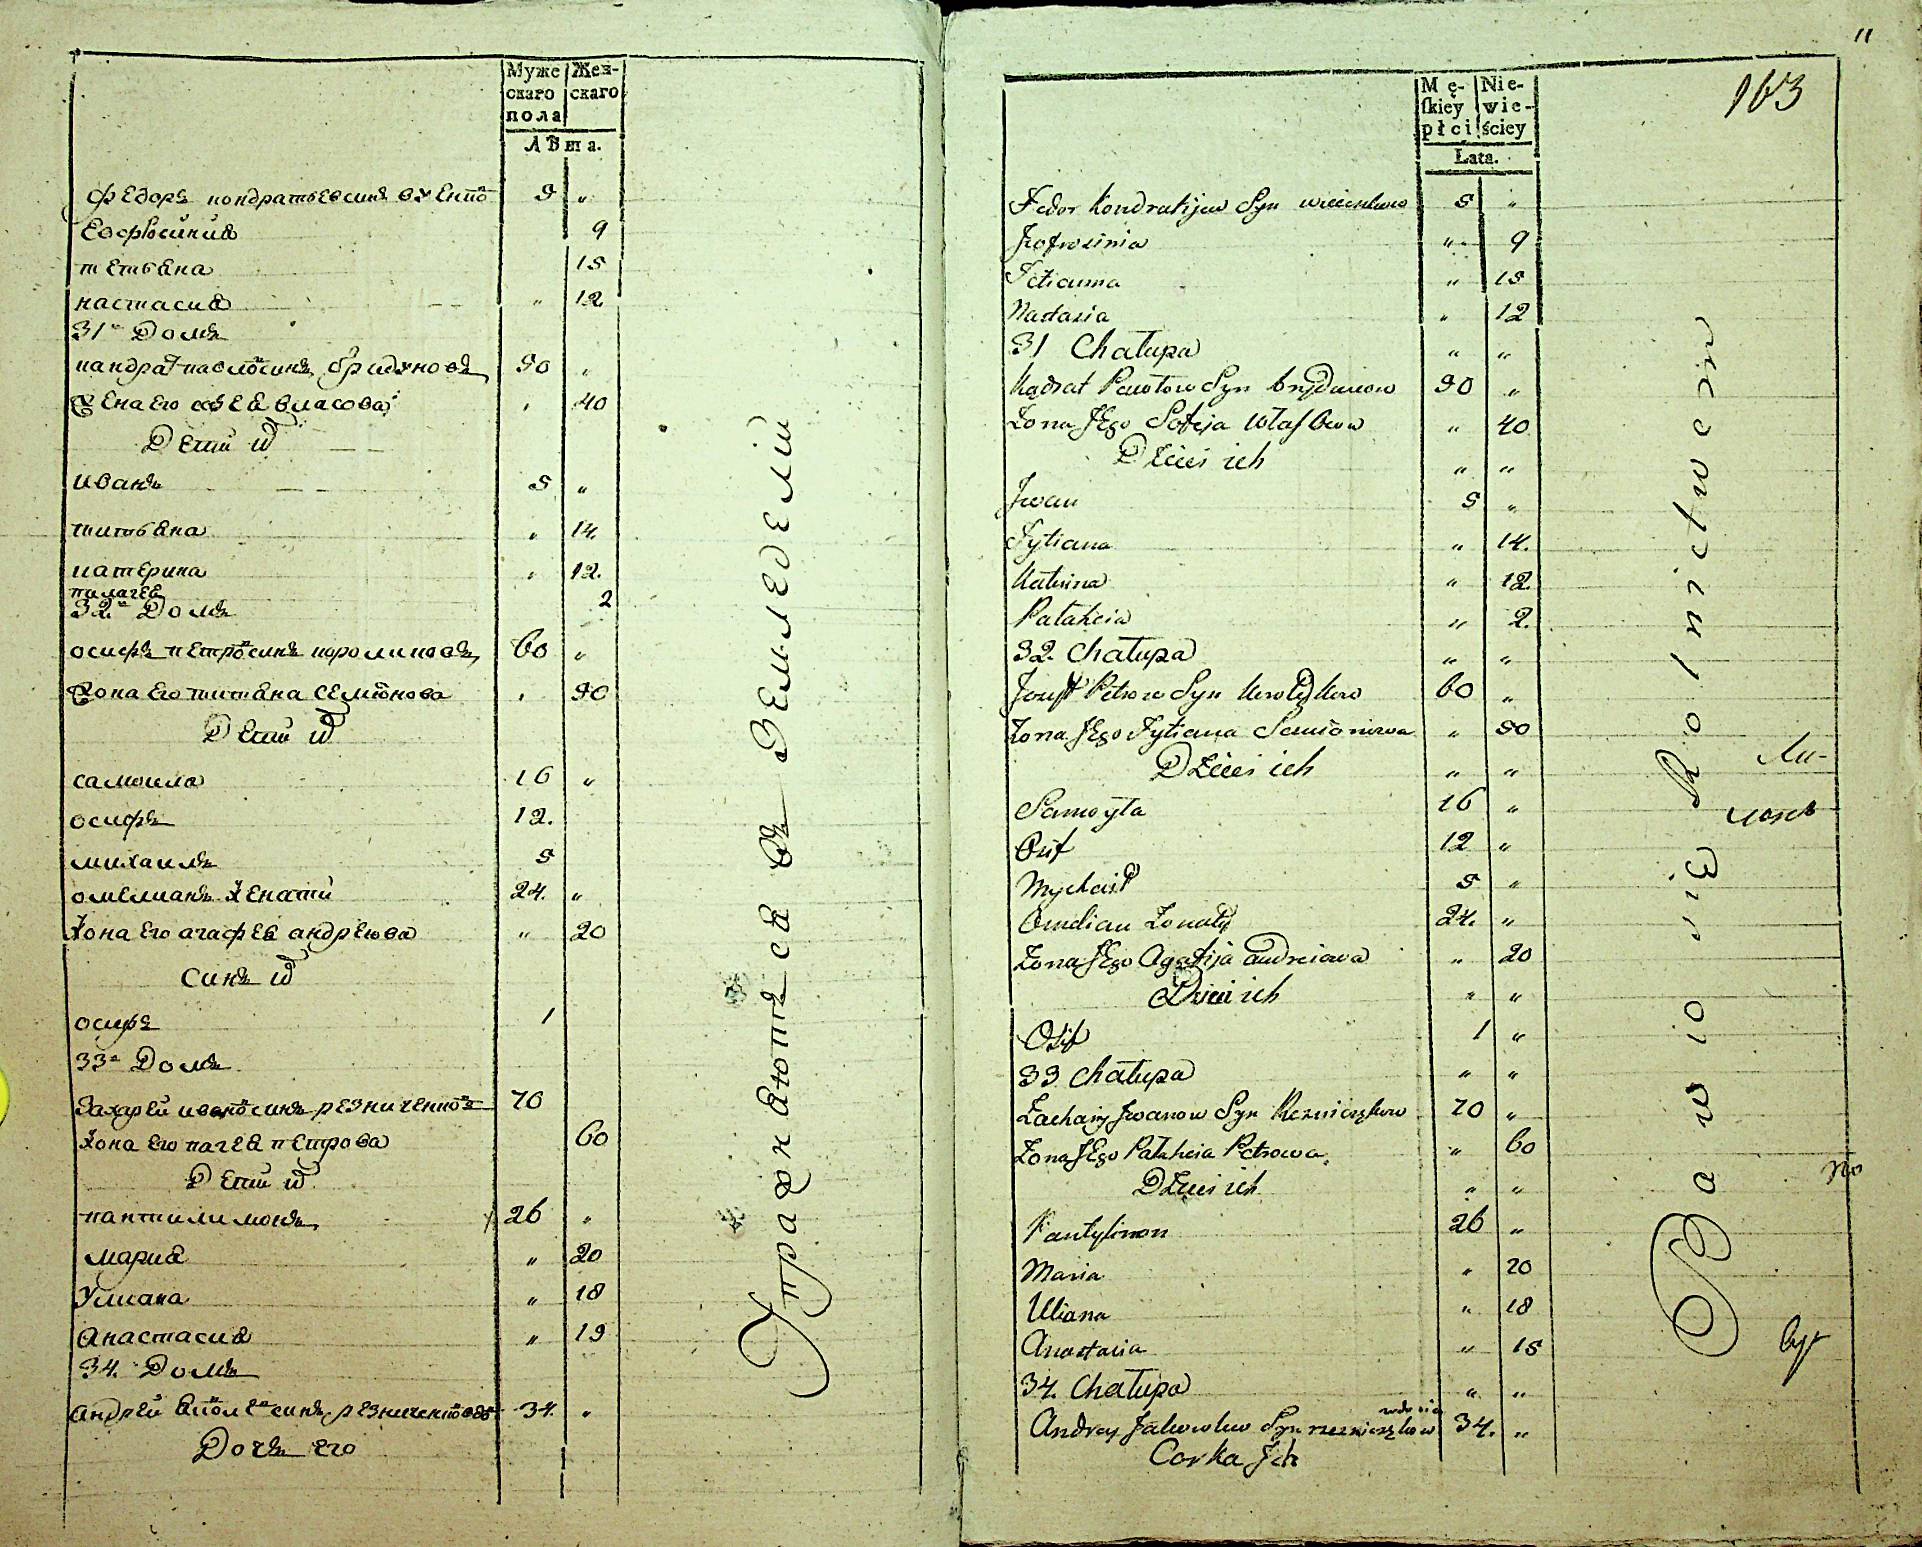 Муже Жен-
скаго скаго
пола
Лѣта.
Федоръ кондратьевсинъ
Евфросиния 9
тетьяна 15
настасия " 12
31й Домъ
кандратъ павловсинъ 50 "
жена его софея власова " 40
Дети их
иванъ 5 "
титьяна " 14.
катерина " 12.
палагея 2
32й Домъ
осифъ петровсинъ 60 "
жона его титяна семионова " 50
Дети их
самоила 16 "
осифъ 12.
михаилъ 5
омелианъ женати 24. "
жона его агафея андреюва " 20
синъ их
осифъ 1
33й Домъ
Захарей ивановсинъ резниченковъ 70
жона его пагея петрова 60
Дети их
пантилимонъ 26 "
мария " 20
Улиана " 18
анастасия " 15
34. Домъ
андрей синъ резниченковъ 34. "
Дочъ его
Упражняются въ Земледелии
11
163
Mę- Nie-
skiey wie-
płci ściey
Lata.
Fedor Kondratijew Syn 5 "
Jefrosinia " 9
Tetianna " 15
Nastasia " 12
31 Chałupa " "
Kądrat Pawłow Syn 50 "
Żona Jego Sofija Własowa " 40
Dzieci ich " "
Jwan 5 "
Tytiana " 14.
Katerina " 12
Pałaheia " 2.
32. Chałupa " "
Jozef Petrow Syn 60 "
Żona Jego Tytiana Semionowa " 50
Dzieci ich " "
Samoyła 16 "
Osif 12 "
Mychaił 5 "
Omelian Żonaty 24. "
Żona Jego Agafija andreiowa " 20
Dzieci ich " "
Osif 1 "
33 Chałupa " "
Zachary Jwanow Syn Rezniczękow 70 "
Żona Jego Pałaheia Petrowa " 60
Dzieci ich " "
Pantylimon 26 "
Maria " 20
Uliana " 18
Anastasia " 15
34. Chałupa " "
Andrey Jakowlew Syn rezniczękow 34. "
Corka Jch
Bawią się Rolnictwem